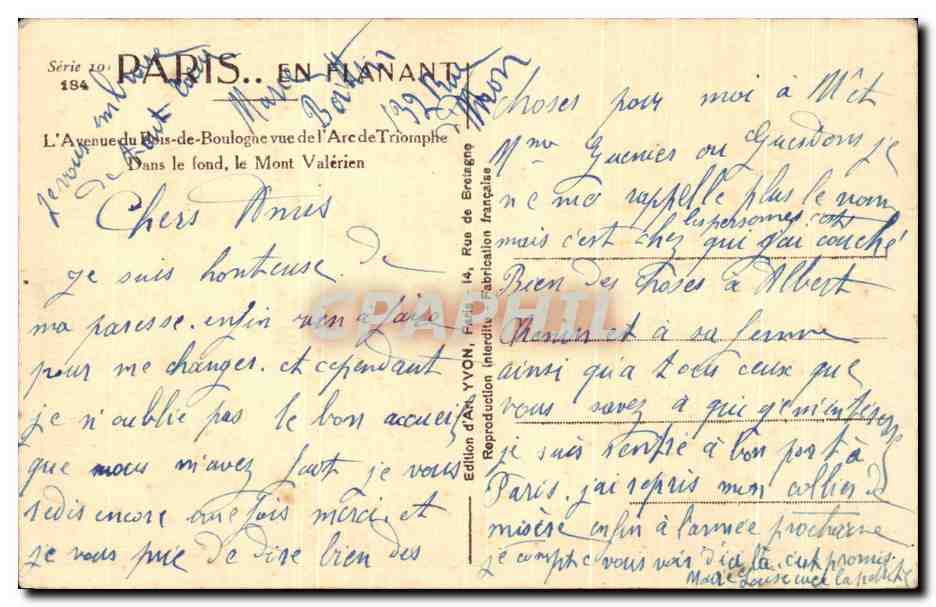 Série 10
184
PARIS.. EN FLANANT
L'Avenue du Bois-de-Boulogne vue de l'Arc de Triomphe
Dans le fond, le Mont Valérien
Chers Amis
je suis honteuse de
ma paresse. enfin rien à faire
pour me changer. et cependant
je n'oublie pas le bon accueil
que vous m'avez fait je vous
redis encore une fois merci. et
je vous prie de dire bien des
Edition d'Art YVON, Paris, 14, Rue de Bretagne
Reproduction interdite Fabrication française
choses pour moi à Mr et
Mme Guenies ou Guesdons je
ne me rappelle plus le nom
mais c'est chez qui j'ai couché
les personnes
Bien des choses à Albert
et à sa femme
ainsi qu'à tous ceux que
vous savez à qui je
je suis rentré à bon port à
Paris. j'ai repris mon collier de
misère enfin à l'année prochaine
je compte vous voir d'ici là. c'est promis
je vous embrasse
de tout cœur
139
CARAPHIL